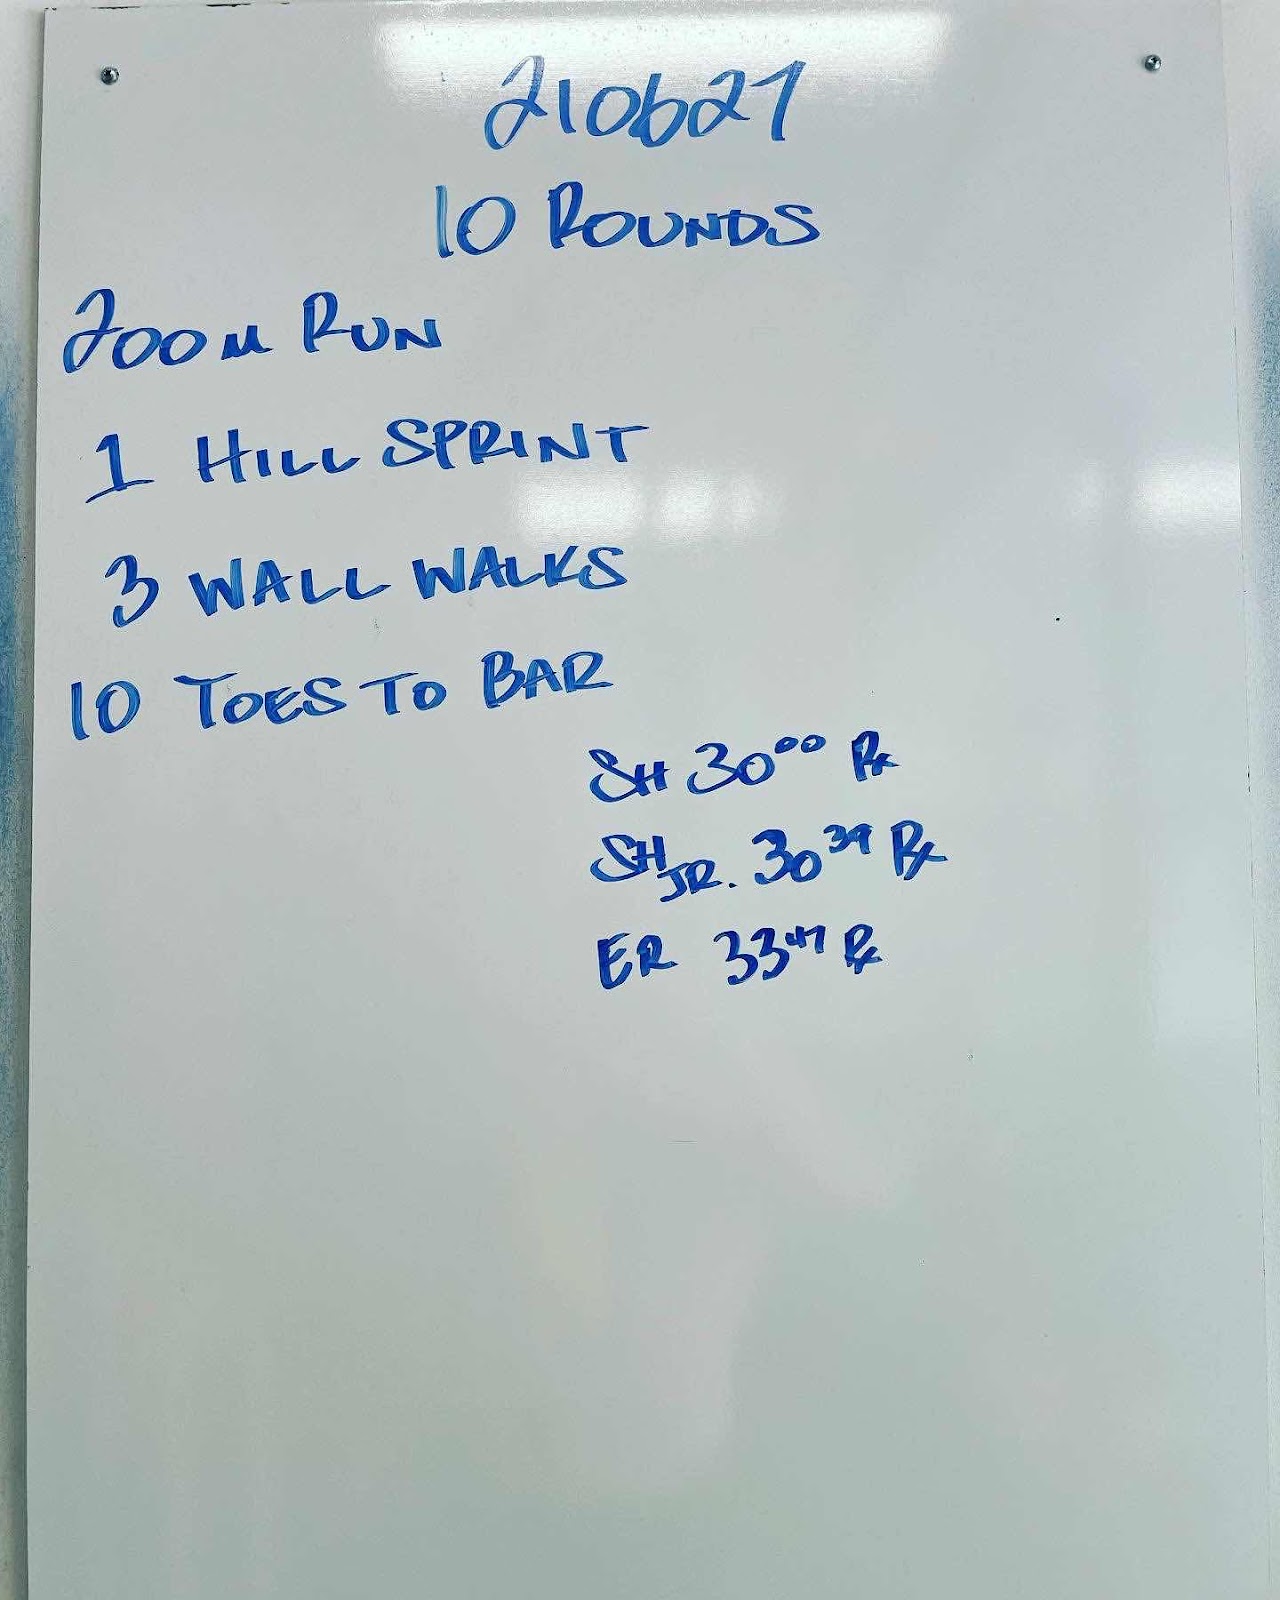 210627
10 ROUNDS
200M RUN
1 HILL SPRINT
3 WALL WALKS
10 TOES TO BAR
SH 30⁰⁰ Rx
SH JR. 30³⁹ Rx
ER 33⁴⁷ Rx